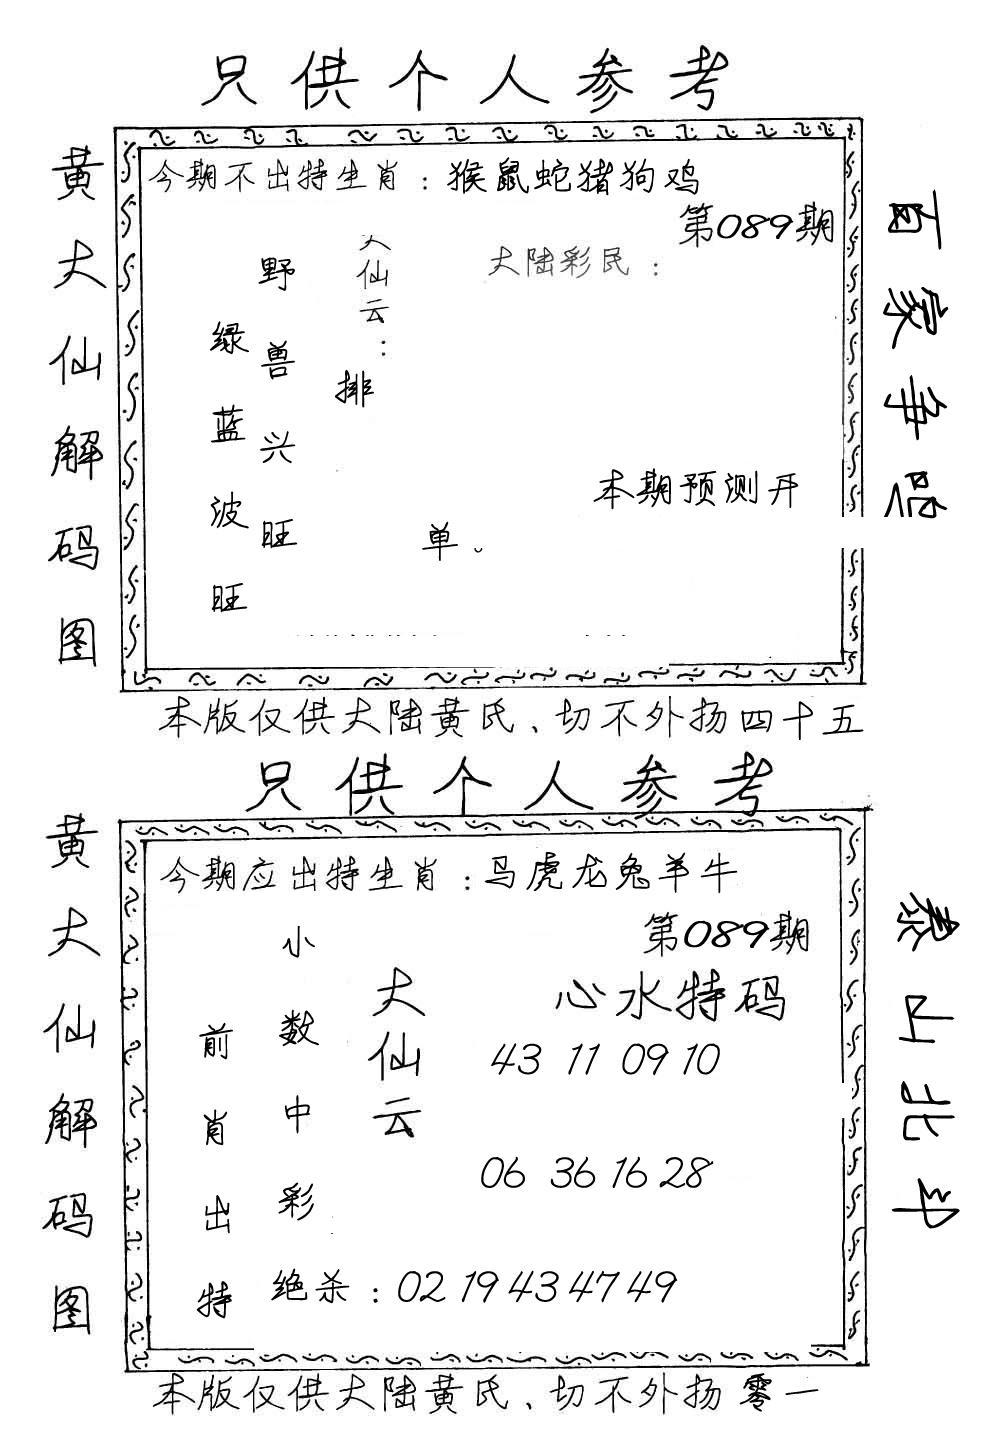 只供个人参考
黄大仙解码图
今期不出特生肖：猴鼠蛇猪狗鸡
第089期
大陆彩民：
仙云：
排
单。
野兽兴旺
绿蓝波旺
本期预测开
百家争
本版仅供大陆黄氏、切不外扬四十五
只供个人参考
黄大仙解码图
今期应出特生肖：马虎龙兔羊牛
第089期
心水特码
大仙云
43 11 09 10
06 36 16 28
小数中彩
前肖出特
绝杀：02 19 43 47 49
泰山北斗
本版仅供大陆黄氏、切不外扬零一